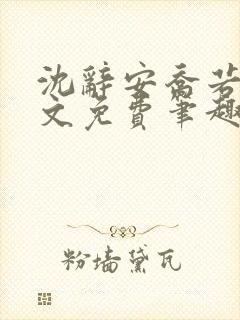 沈辞安乔若
文免费笔趣
粉墙黛瓦